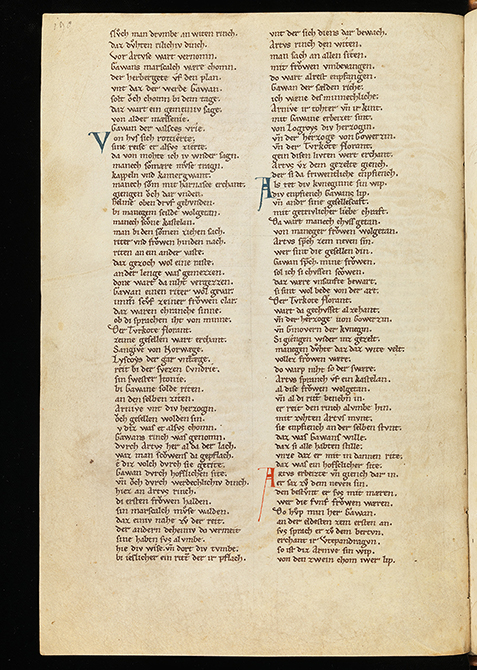 slvͦch man drvmbe an witen rinch.
daz dvhten richiv dinch.
Vor Artvse wart vernomen.
Gawans marscalch wære chomen.
der herbergete vf den plan.
vnt daz der werde Gawan.
solt oͮch chomen bi dem tage.
daz wart ein gemeiniv sage.
von alder massenie.
Gawan der valsces vrie.
Von hvs sich
sine reise er alsvs zierte.
da von mohte ich iv wnder sagen.
manech soͮmære mvse tragn.
kappeln vnd kamergwant.
manech soͮm mit harnasce erchant.
giengen oͮch dar vnden.
helme oben drvf gebvnden.
bi manegem scilde wolgetan.
manech scone kastelan.
man bi den soͮmen ziehen sach.
riter vnd froͮwen hinden nach.
riten an ein ander vaste.
daz gezoch wol eine raste.
an der lenge was gemezzen.
done wart da niht vergezzen.
Gawan einen riter wol gevar.
immer scvͦf zeiner froͮwen clar.
daz waren chranche sinne.
ob di sprachen iht von minne.
Der Tvrkoyte Florant.
zeime gesellen wart erchant.
Sangive von Norwæge.
Lyscoys der gar vntrege.
reit bi der svezen Cvndrie.
sin swester Itonie.
bi Gawane solde riten.
an den selben ziten.
Arnive vnt div herzogin.
oͮch gesellen wolden sin.
diz was et alsvs chomn.
Gawans rinch was genomen.
dvrch Artvs her al da der lach.
waz man scoͮwens da gepflach.
e diz volch dvrch sie gerite.
Gawan dvrch hoflichen site.
vnd oͮch dvrch werdechlichiv dinch.
hiez an Artvs rinch.
di ersten froͮwen halden.
sin marscalch mvse walden.
daz einiv nahe zv der reit.
der andern dehein da vermeit.
sine haben svs alvmbe.
hie div wise vnd dort div tvmbe.
bi ieslicher ein riter der ir pflach.
vnt der sich diens dar bewach.
Artvs rinch den witen.
man sach an allen siten.
mit froͮwen vmbevangen.
do wart alrest enpfangen.
Gawan der sælden riche.
ich wæne des minnechliche.
Arnive ir tohter vnd ir kint.
mit Gawane erbeizet sint.
von Logroys div herzogin.
vnd der herzoge von Gowerzin.
vnd der Tvrkoyte Florant.
gein disen livten wert erchant.
Artvs vz dem gezelte giench.
der si da frivntliche enpfiench.
Als tet div kvneginne sin wip.
div enpfiench Gawans lip.
vnd ander sine gesellescaft.
mit getrivlicher liebe chraft.
Da wart manech chvs getan.
von maneger froͮwen wolgetan.
Artvs sprach zem neven sin.
wer sint die gesellen din.
Gawan sprach mine froͮwen.
sol ich si chvssen scoͮwen.
daz wære vnsanfte bewart.
si sint wol bede von der art.
Der Tvrkoyte Florant.
wart da gechvsset al zehant.
vnd der herzoge von Gowerzin.
von Ginovern der kvnegin.
Si giengen wider inz gezelt.
manegen dvhte daz daz wite velt.
vollez froͮwen wære.
do warp niht so der swære.
Artvs spranch vf ein kastelan.
al dise froͮwen wolgetan.
vnd al di riter beneben in.
er reit den rinch alvmbe hin.
mit zvhten Artvs mvnt.
sie enpfiench an der selben stvnt.
daz was Gawans wille.
daz si alle habten stille.
vnze daz er mit in dannen rite.
daz was ein hoffelicher site.
Artvs erbeizte vnd giench dar in.
er saz zv dem neven sin.
den bestvnt er svs mit mæren.
wer die fvnf froͮwen wæren.
Do hvp min her Gawan.
an der eldesten zem ersten an.
svs sprach er zv dem Bertvn.
erchant ir Vtepandragvn.
so ist diz Arnive sin wip.
von den zwein chom iwer lip.